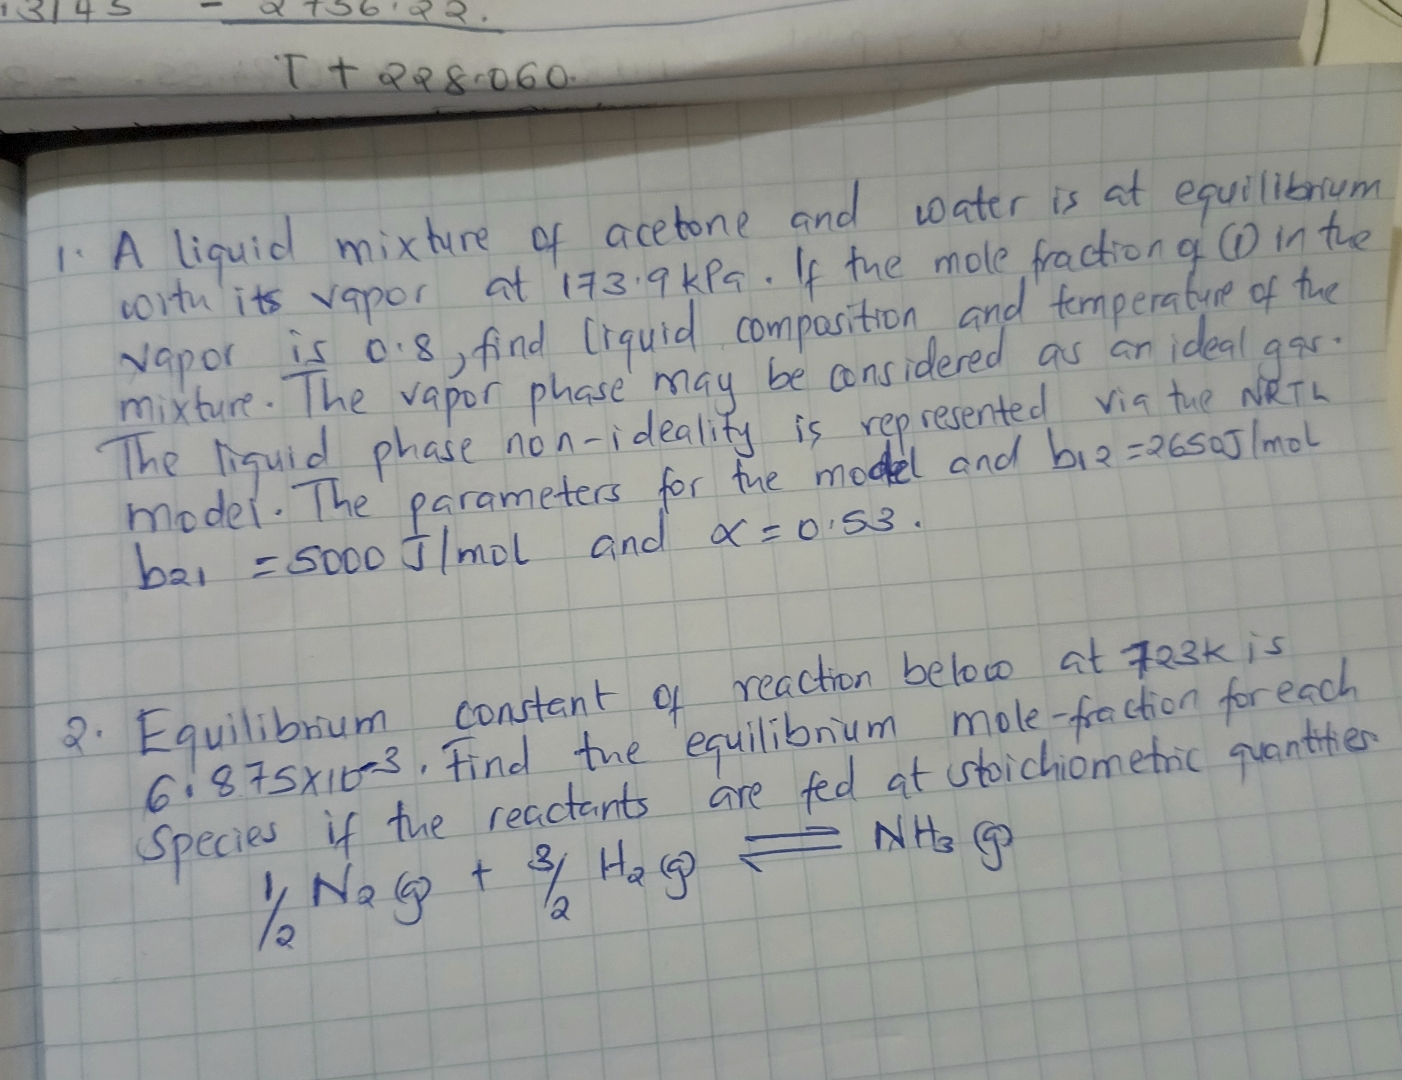 - 2756.22.
T + 228.060.
1. A liquid mixture of acetone and water is at equilibrium
with its vapor at 173.9 kPa. If the mole fraction of (1) in the
vapor is 0.8, find liquid composition and temperature of the
mixture. The vapor phase may be considered as an ideal gas.
The liquid phase non-ideality is represented via the NRTL
model. The parameters for the model and b12 = 2650J/mol
b21 = 5000 J/mol and α = 0.53.
2. Equilibrium constant of reaction below at 723K is
6.875x10-3. Find the equilibrium mole-fraction for each
Species if the reactants are fed at stoichiometric quantities
1/2 N2 (g) + 3/2 H2 (g) ⇌ NH3 (g)